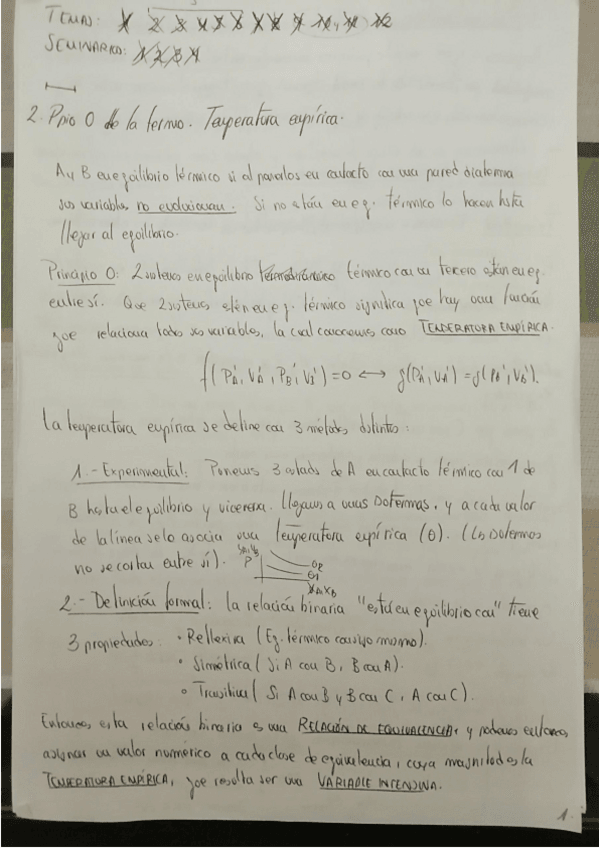 TEMAS: 1 2 3 4 5 6 7 8 9 10, 11, 12
SEMINARIOS: 1 2 3 4
2. Ppio 0 de la termo. Temperatura empírica.
A y B en equilibrio térmico si al ponerlos en contacto con una pared diaterma
sus variables no evolucionan. Si no están en eq. térmico lo hacen hasta
llegar al equilibrio.
Principio 0: 2 sistemas en equilibrio termodinámico térmico con un tercero están en eq.
entre sí. Que 2 sistemas estén en eq. térmico significa que hay una función
que relaciona todas sus variables, la cual conocemos como TEMPERATURA EMPÍRICA.
f(PA', VA', PB', VB') = 0 ↔ g(PA', VA') = g(PB', VB').
La temperatura empírica se define con 3 métodos distintos:
1.- Experimental: Ponemos 3 estados de A en contacto térmico con 1 de
B hasta el equilibrio y viceversa. Llegamos a unas isotermas, y a cada valor
de la línea se lo asocia una temperatura empírica (θ). (Las isotermas
no se cortan entre sí).
P
θ2
θ1
2.- Definición formal: la relación binaria "está en equilibrio con" tiene
3 propiedades: • Reflexiva (Eq. térmico consigo mismo).
• Simétrica (Si A con B, B con A).
• Transitiva (Si A con B y B con C, A con C).
Entonces, esta relación binaria es una RELACIÓN DE EQUIVALENCIA, y podemos entonces
asignar un valor numérico a cada clase de equivalencia, cuya magnitud es la
TEMPERATURA EMPÍRICA, que resulta ser una VARIABLE INTENSIVA.
1.